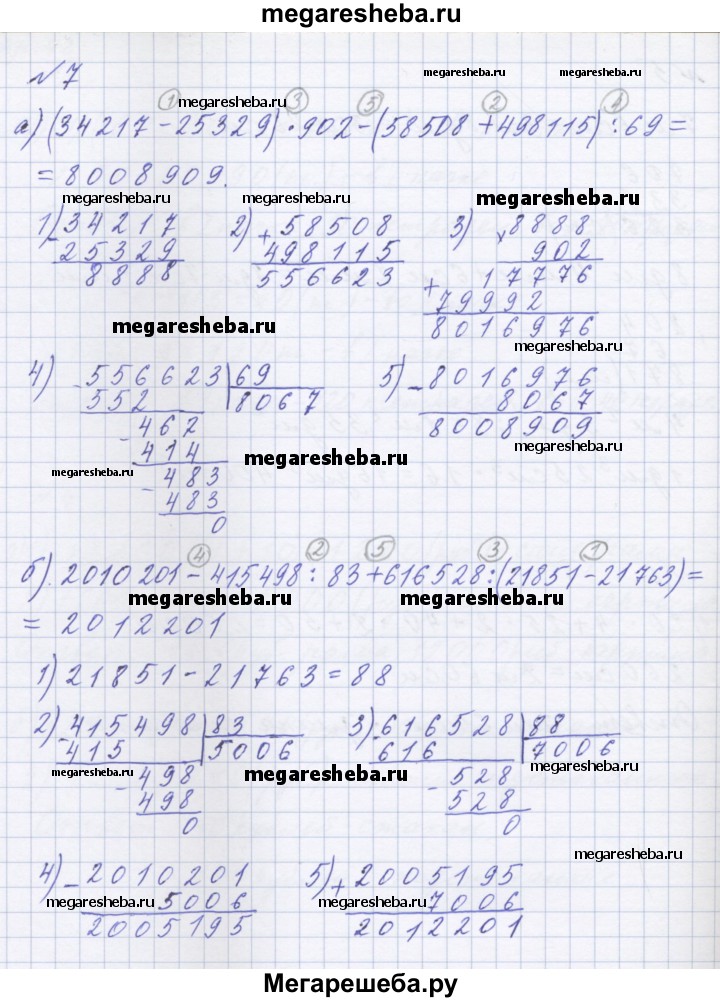 megaresheba.ru
№7
megaresheba.ru megaresheba.ru megaresheba.ru
① ③ ⑤ ② ④
а) (34217-25329)·902-(58508+498115):69=
=8008909.
megaresheba.ru megaresheba.ru megaresheba.ru
1) - 34217 2) + 58508 3) x 8888
25329 498115 902
8888 556623 + 17776
79992
8016976
megaresheba.ru
megaresheba.ru
4) - 556623 69 5) - 8016976
552 8067 8067
- 462 8008909
414
megaresheba.ru - 483 megaresheba.ru megaresheba.ru
483
0
④ ② ⑤ ③ ①
б). 2010201-415498:83+616528:(21851-21763)=
megaresheba.ru megaresheba.ru
=2012201
1) 21851-21763=88
2) - 415498 83 3) - 616528 88
415 5006 616 7006
megaresheba.ru - 498 megaresheba.ru - 528 megaresheba.ru
498 528
0 0
megaresheba.ru
4) - 2010201 5) + 2005195
megaresheba.ru 5006 megaresheba.ru 7006
2005195 2012201
Мегарешеба.ру